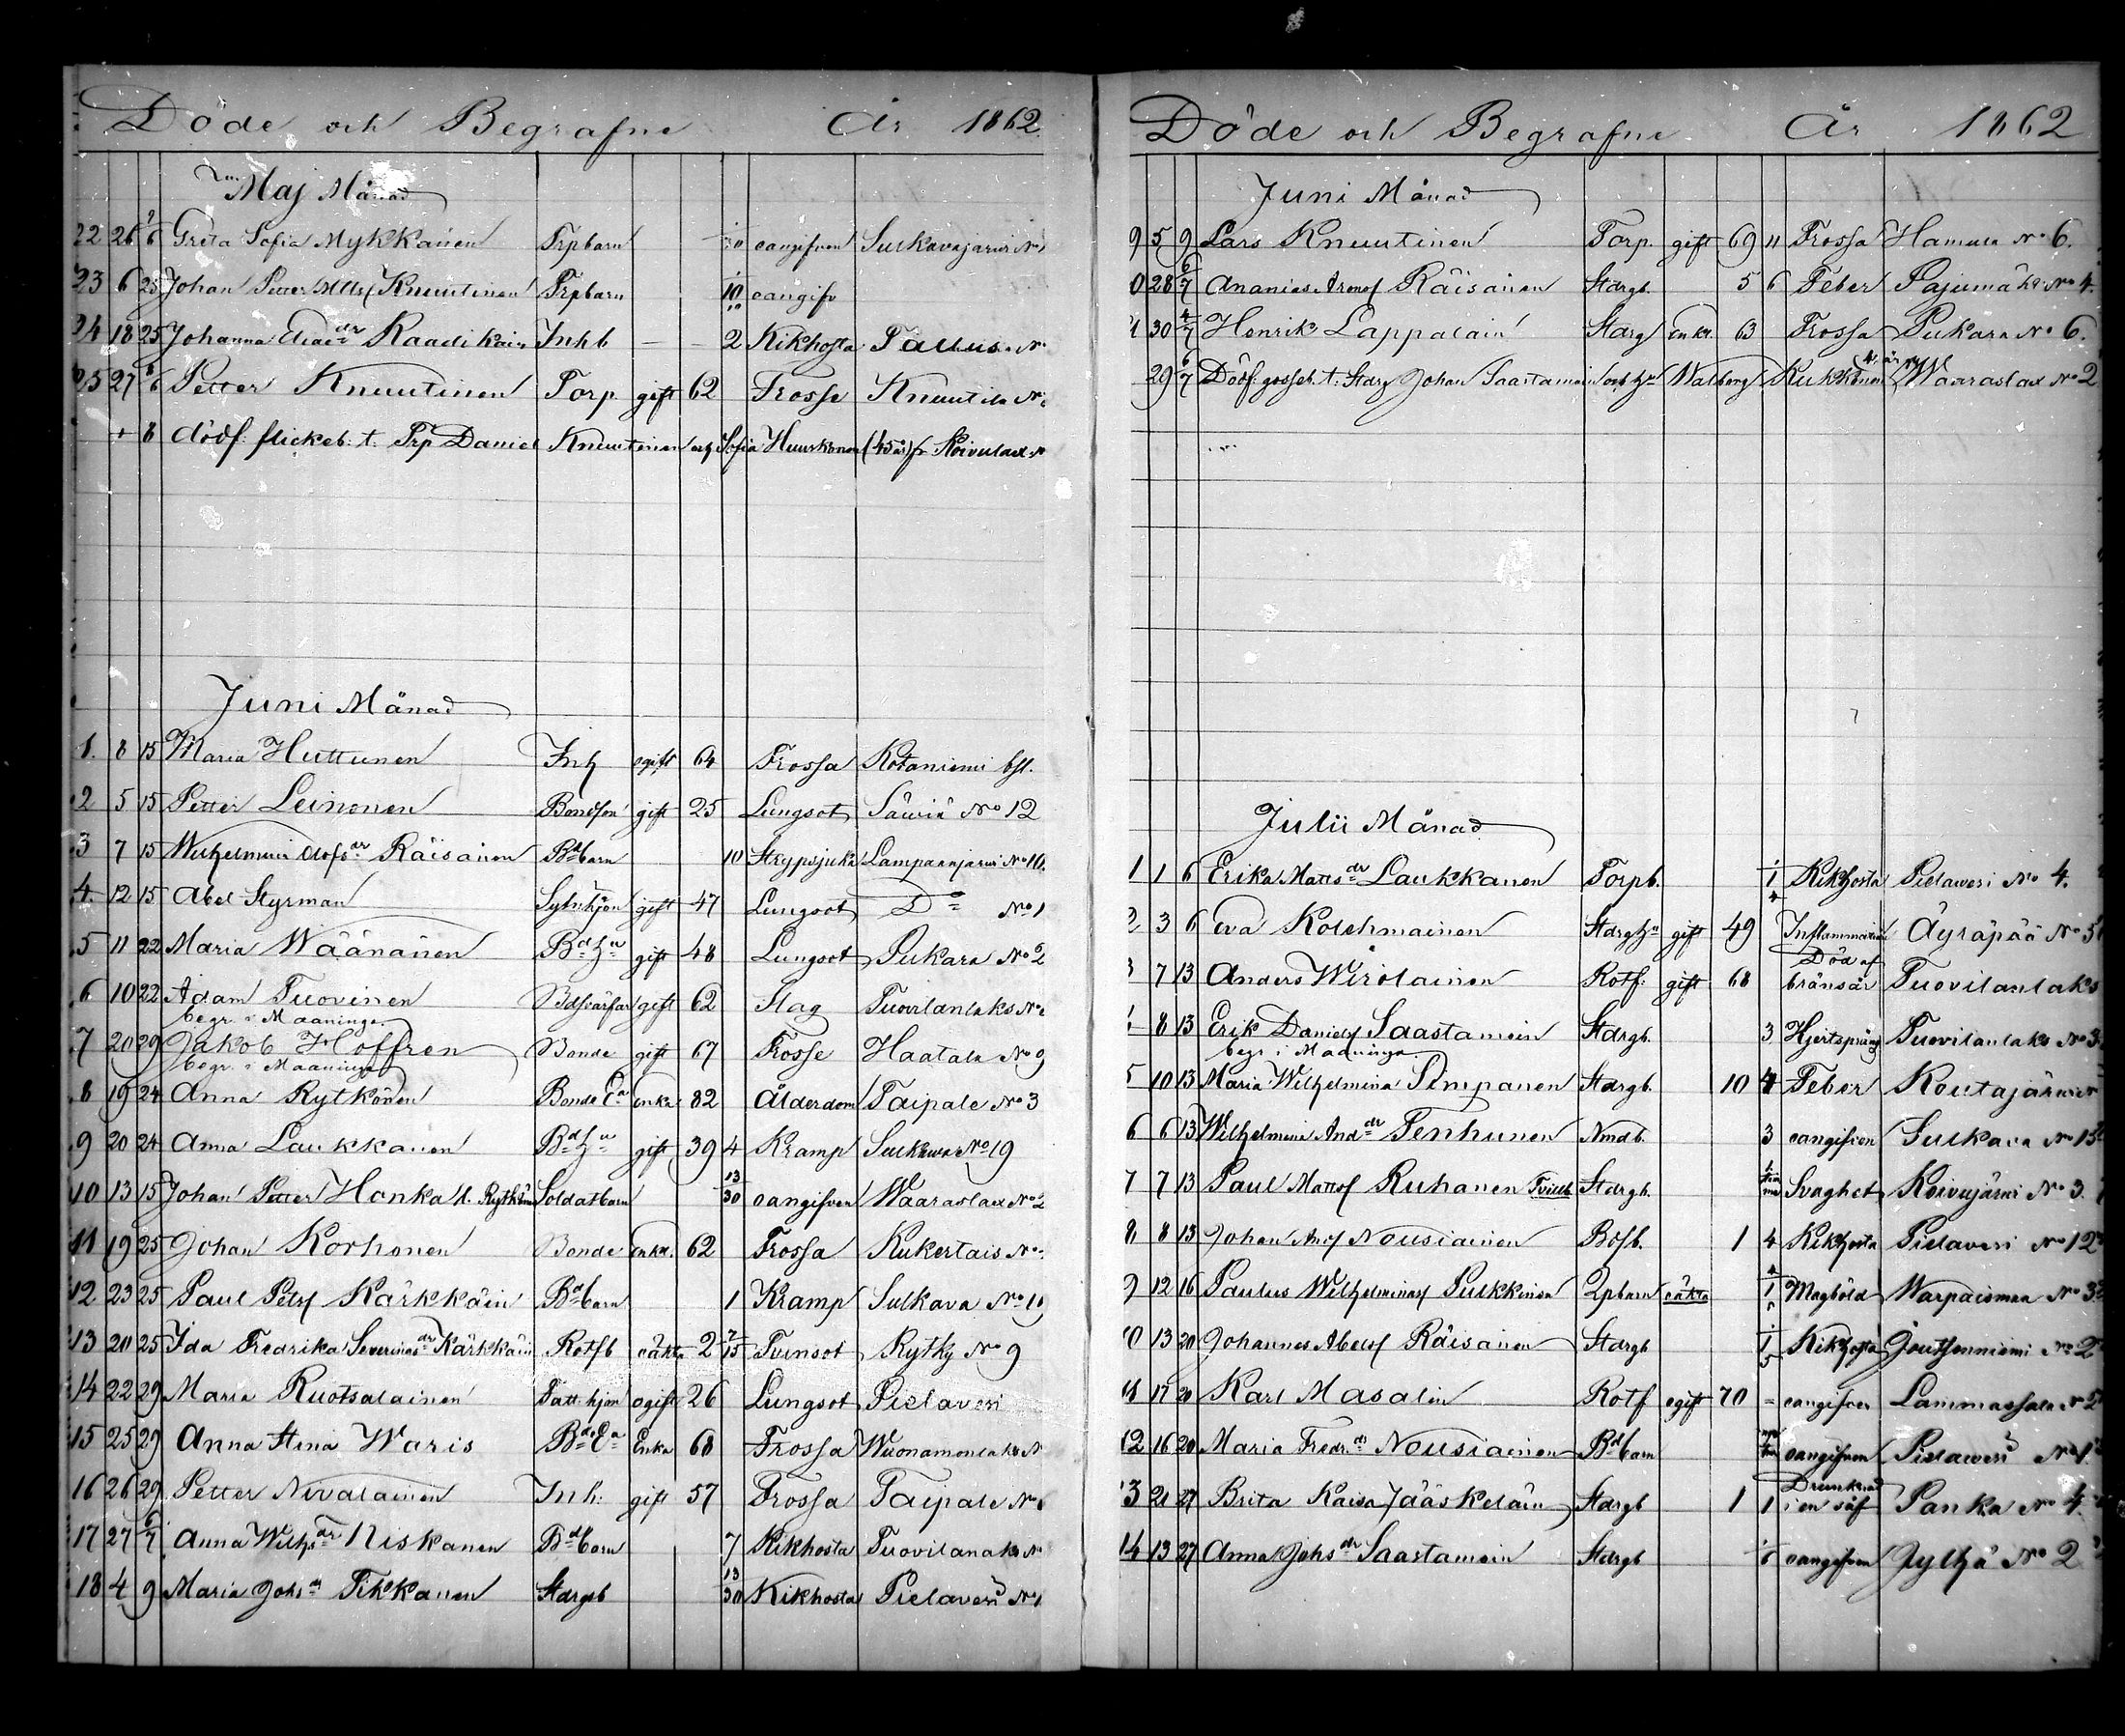 Döde och Begrafne År 1862.
Maj Månad
22 26 6 Greta Sofia Mykkänen Trpbarn oangifven Sulkavajärvi No
23 6 25 Johan Petter Mttsf Knuutinen Trpbarn 10 oangifv
24 18 25 Johanna dr Raatikain Inhb — — 2 Kikhosta Tallus No
25 27 6 Petter Knuutinen Torp. gift 62 Frossa Knuutila No
8 dödf. flickeb. t. Trp Daniel Knuutinen och Sofia Huuskonen (45 år) fr. Koivulax
Juni Månad
1. 8 15 Maria Huttunen Inh ogift 64 Frossa Kotaniemi bst.
2 5 15 Petter Leinonen Bondson gift 25 Lungsot Säviä No 12
3 7 15 Wilhelmina Olofsdr Räisänen Bdbarn 10 Strypsjuka Lampaanjärvi No 10.
4. 12 15 Abel Styrman Sytnhjon gift 47 Lungsot Do No 1
5 11 22 Maria Wäänänen Bd Hu gift 48 Lungsot Pukara No 2
6 10 22 Adam Tuovinen Bdsvärfar gift 62 Slag Tuovilanlaks No
begr. i Maaninga
7 20 29 Jakob Hoffren Bonde gift 67 Frossa Haatala No 9
begr. i Maaninga
8 19 24 Anna Rytkönen Bonde Ea Enka 82 Ålderdom Taipale No 3
9 20 24 Anna Laukkanen Bd Hu gift 39 4 Kramp Sulkava No 19
10 13 15 Johan Petter Honka l. Rytkönen Soldatbarn 13/30 oangifven Waaraslax No 2
11 19 25 Johan Korhonen Bonde Enkl. 62 Frossa Kukertais No
12 23 25 Paul Petsf Kärkkäin Bdbarn 1 Kramp Sulkava No 19
13 20 25 Ida Fredrika Severinasdr Kärkkäin Rotfb oäkta 2 7/15 Tvinsot Rytky No 9
14 22 29 Maria Ruotsalainen Fatt.hjon ogift 26 Lungsot Pielavesi
15 25 29 Anna Stina Waris Bd Ea Enka 68 Frossa Wuonamonlaks N
16 26 29 Petter Nivalainen Inh: gift 57 Frossa Taipale No
17 27 6/7 Anna Wilhsdr Niskanen Bdbarn 7 Kikhosta Tuovilanlaks N
18 4 9 Maria Johsdr Tikkanen Stdrgb 13/30 Kikhosta Pielavesi No 1
Döde och Begrafne År 1862
Juni Månad
9 5 9 Lars Knuutinen Torp. gift 69 11 Frossa Hamula No 6.
0 28 6/7 Ananias Aronsf Räisänen Stdrgb. 5 6 Feber Pajumäki No 4.
1 30 4/7 Henrik Lappalain Stdrg Enkl. 63 Frossa Pukara No 6.
29 6/7 Dödf. gosseb. t. Stdrg Johan Saastamoin och Hu Walborg Kukkonen Waaraslax No 2
Julii Månad
1 1 6 Erika Mattsdr Laukkanen Torpb. 1 Kikhosta Pielavesi No 4.
2 3 6 Eva Kolehmainen Stdrg Hu gift 49 Inflammation Äyräpää No 5
3 7 13 Anders Wirolainen Rotf: gift 68 Död af brånsår Tuovilanlaks
8 13 Erik Danielsf Saastamoin Stdrgb. 3 Hjertsprång Tuovilanlaks No 3
begr. i Maaninga
5 10 13 Maria Wilhelmina Simpanen Stdrgb. 10 4 Feber Koutajärvi N
6 6 13 Wilhelmina Anddr Tenhunen Nmdb. 3 oangifven Sulkava No 15
7 7 13 Paul Mattsf Ruhanen Tvillb Stdrgb. Svaghet Koivujärvi No 3.
8 8 13 Johan Ansf Nousiainen Bdsb. 1 4 Kikhosta Pielavesi No 12
9 12 16 Paulus Wilhelminasf Pulkkinen Lpbarn oäkta 1 Magböld Warpaismaa No 3
0 13 20 Johannes Abelsf Räisänen Stdrgb 1/5 Kikhosta Joutsenniemi No 2
11 17 20 Karl Masalin Rotf ogift 70 — oangifven Lammassalo No 5
12 16 20 Maria Fredrdr Nousiainen Bdbarn oangifven Pielavesi No 1.
13 21 27 Brita Kaisa Jääskeläin Stdrgb 1 1 Drunknad i en såf Panka No 4.
14 13 27 Anna Johsdr Saastamoin Stdrgb 6 oangifven Jylhä No 2